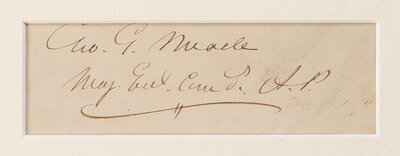 Geo. G. Meade
Maj. Genl. Com'd. A. P.